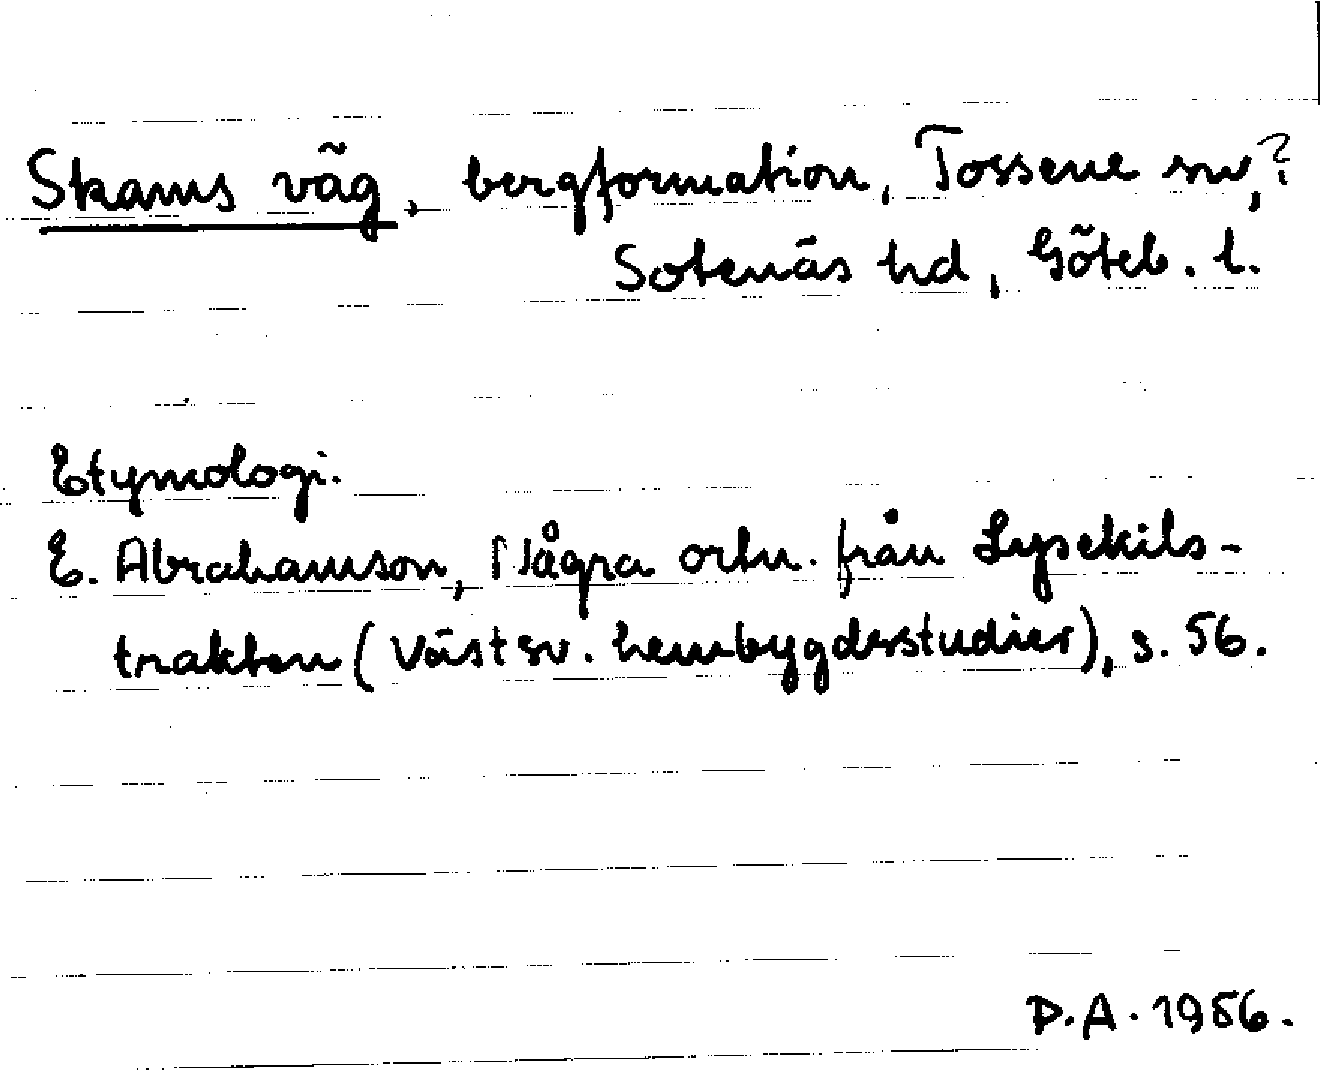 Skams väg, bergformation, Tossene sn,?
Sotenäs hd, Göteb. l.
Etymologi.
E. Abrahamson, Några ortn. från Lysekils-
trakten (Västsv. hembygdsstudier), s. 56.
D.A. 1956.